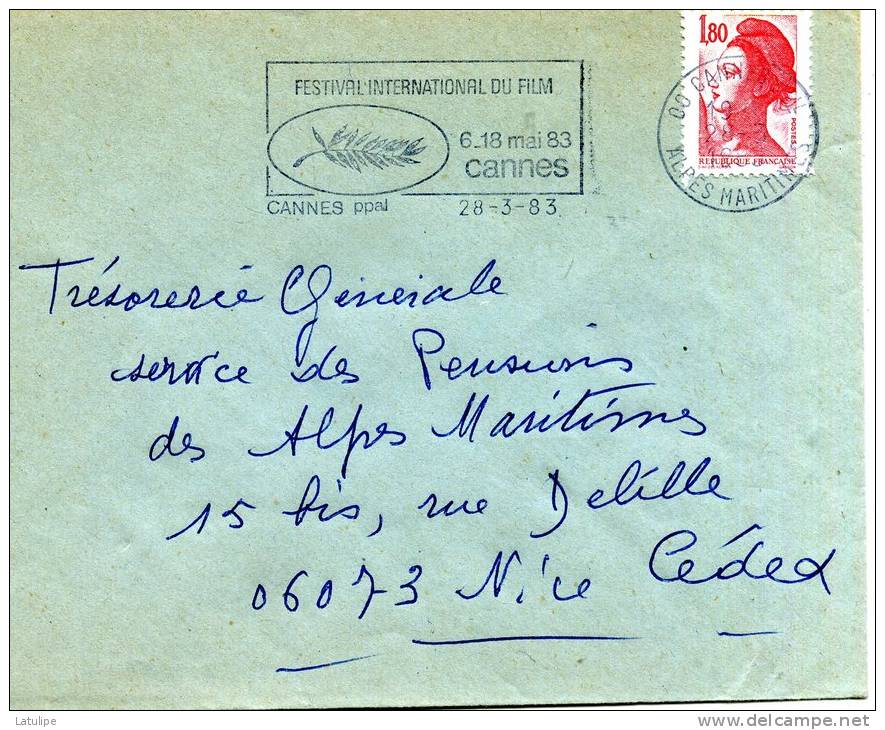 1,80
FESTIVAL INTERNATIONAL DU FILM
6-18 mai 83
cannes
CANNES ppal
28-3-83
POSTES
REPUBLIQUE FRANÇAISE
ALPES MARITIMES
Trésorerie Générale
service des Pensions
des Alpes Maritimes
15 bis, rue Delille
06073 Nice Cédex
Latulipe
www.delcampe.net